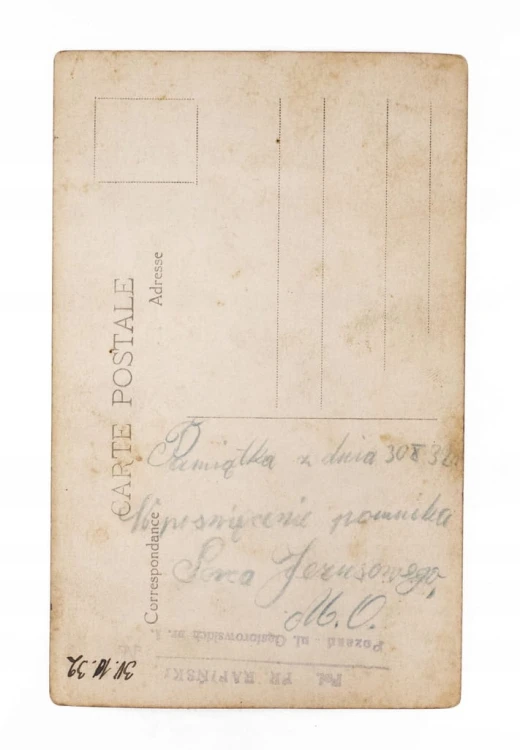 CARTE POSTALE
Correspondance
Adresse
Pamiątka z dnia 30 X 32.
W poświęcenie pomnika
Serca Jezusowego,
M. O.
Poznań - ul. Gąsiorowskich nr.
Fot. FR. RAPIŃSKI
30.10.32